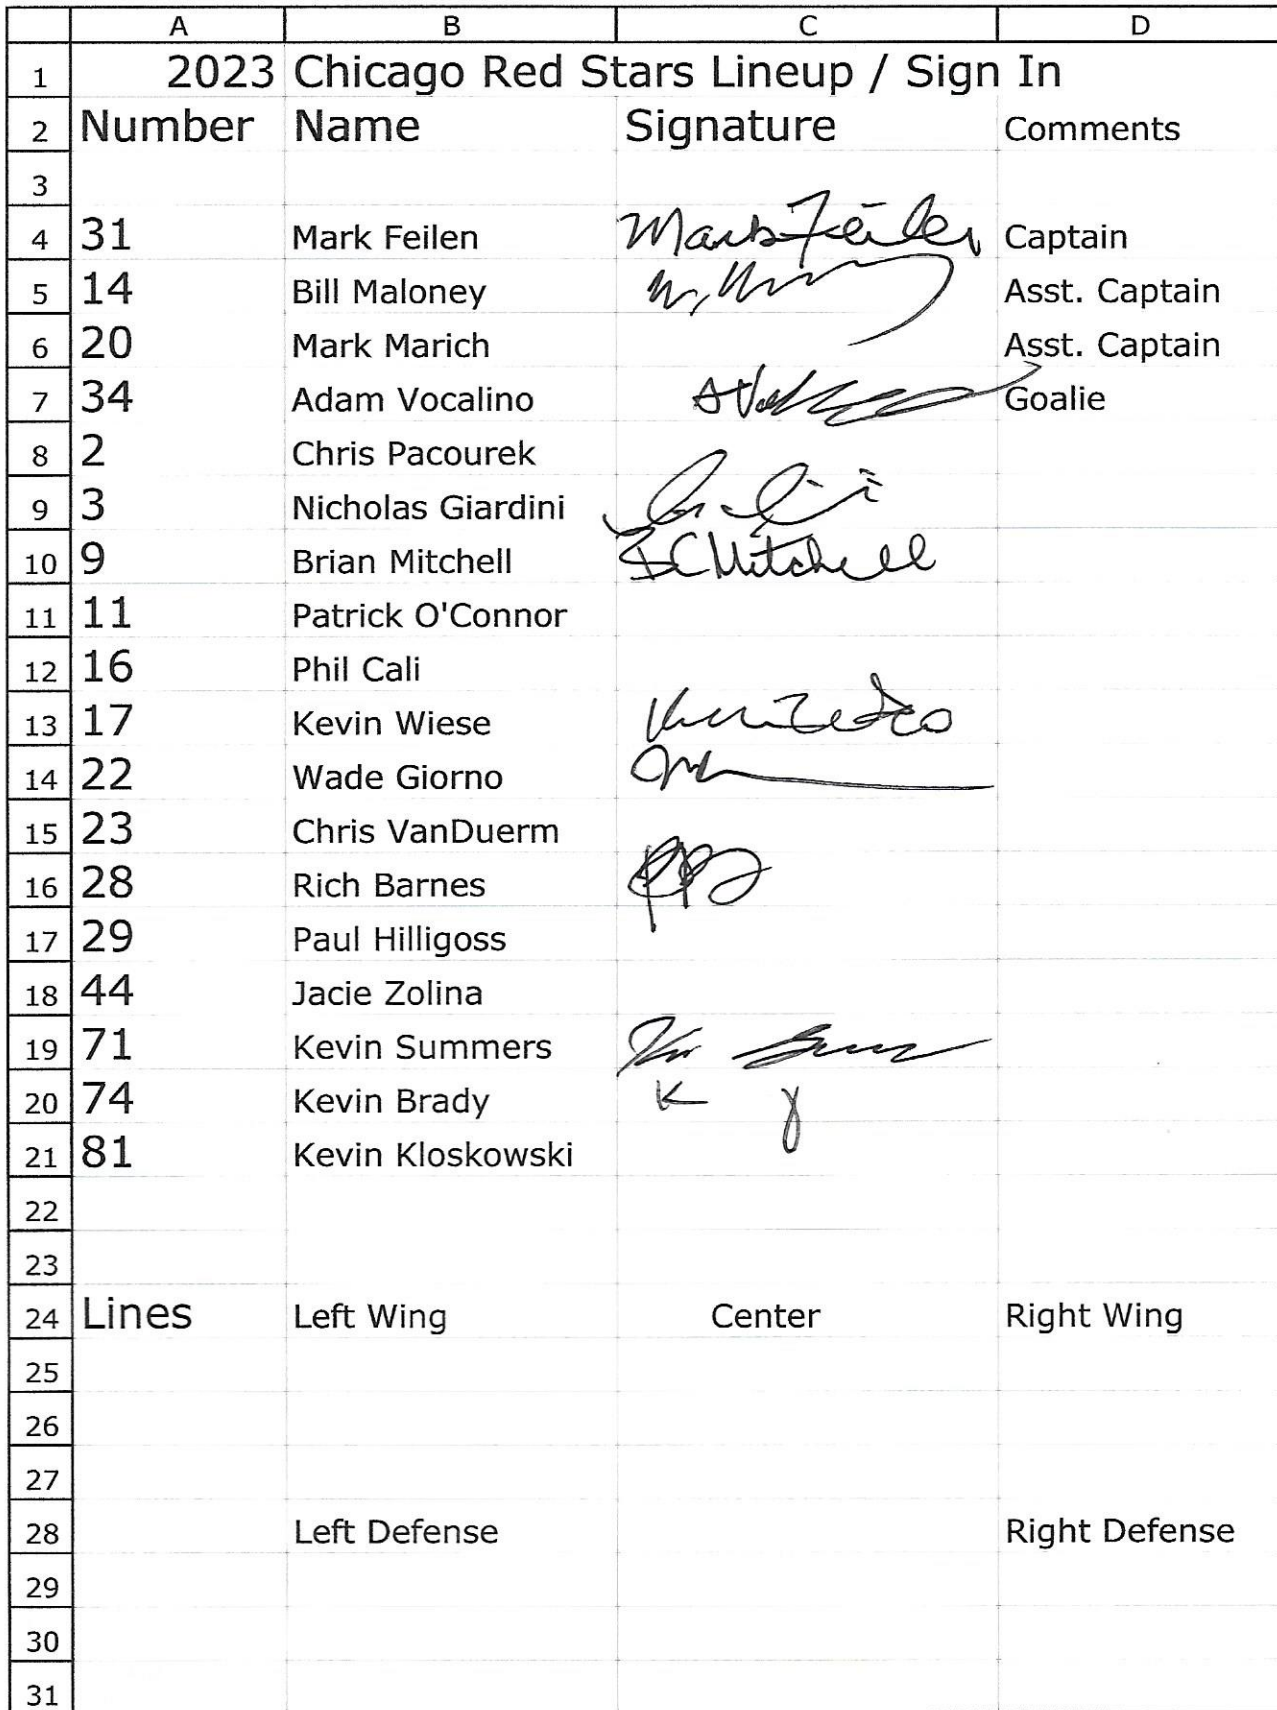 A B C D
1 2023 Chicago Red Stars Lineup / Sign In
2 Number Name Signature Comments
3
4 31 Mark Feilen Mark Feilen Captain
5 14 Bill Maloney Asst. Captain
6 20 Mark Marich Asst. Captain
7 34 Adam Vocalino Goalie
8 2 Chris Pacourek
9 3 Nicholas Giardini
10 9 Brian Mitchell BC Mitchell
11 11 Patrick O'Connor
12 16 Phil Cali
13 17 Kevin Wiese
14 22 Wade Giorno
15 23 Chris VanDuerm
16 28 Rich Barnes
17 29 Paul Hilligoss
18 44 Jacie Zolina
19 71 Kevin Summers
20 74 Kevin Brady K y
21 81 Kevin Kloskowski
22
23
24 Lines Left Wing Center Right Wing
25
26
27
28 Left Defense Right Defense
29
30
31